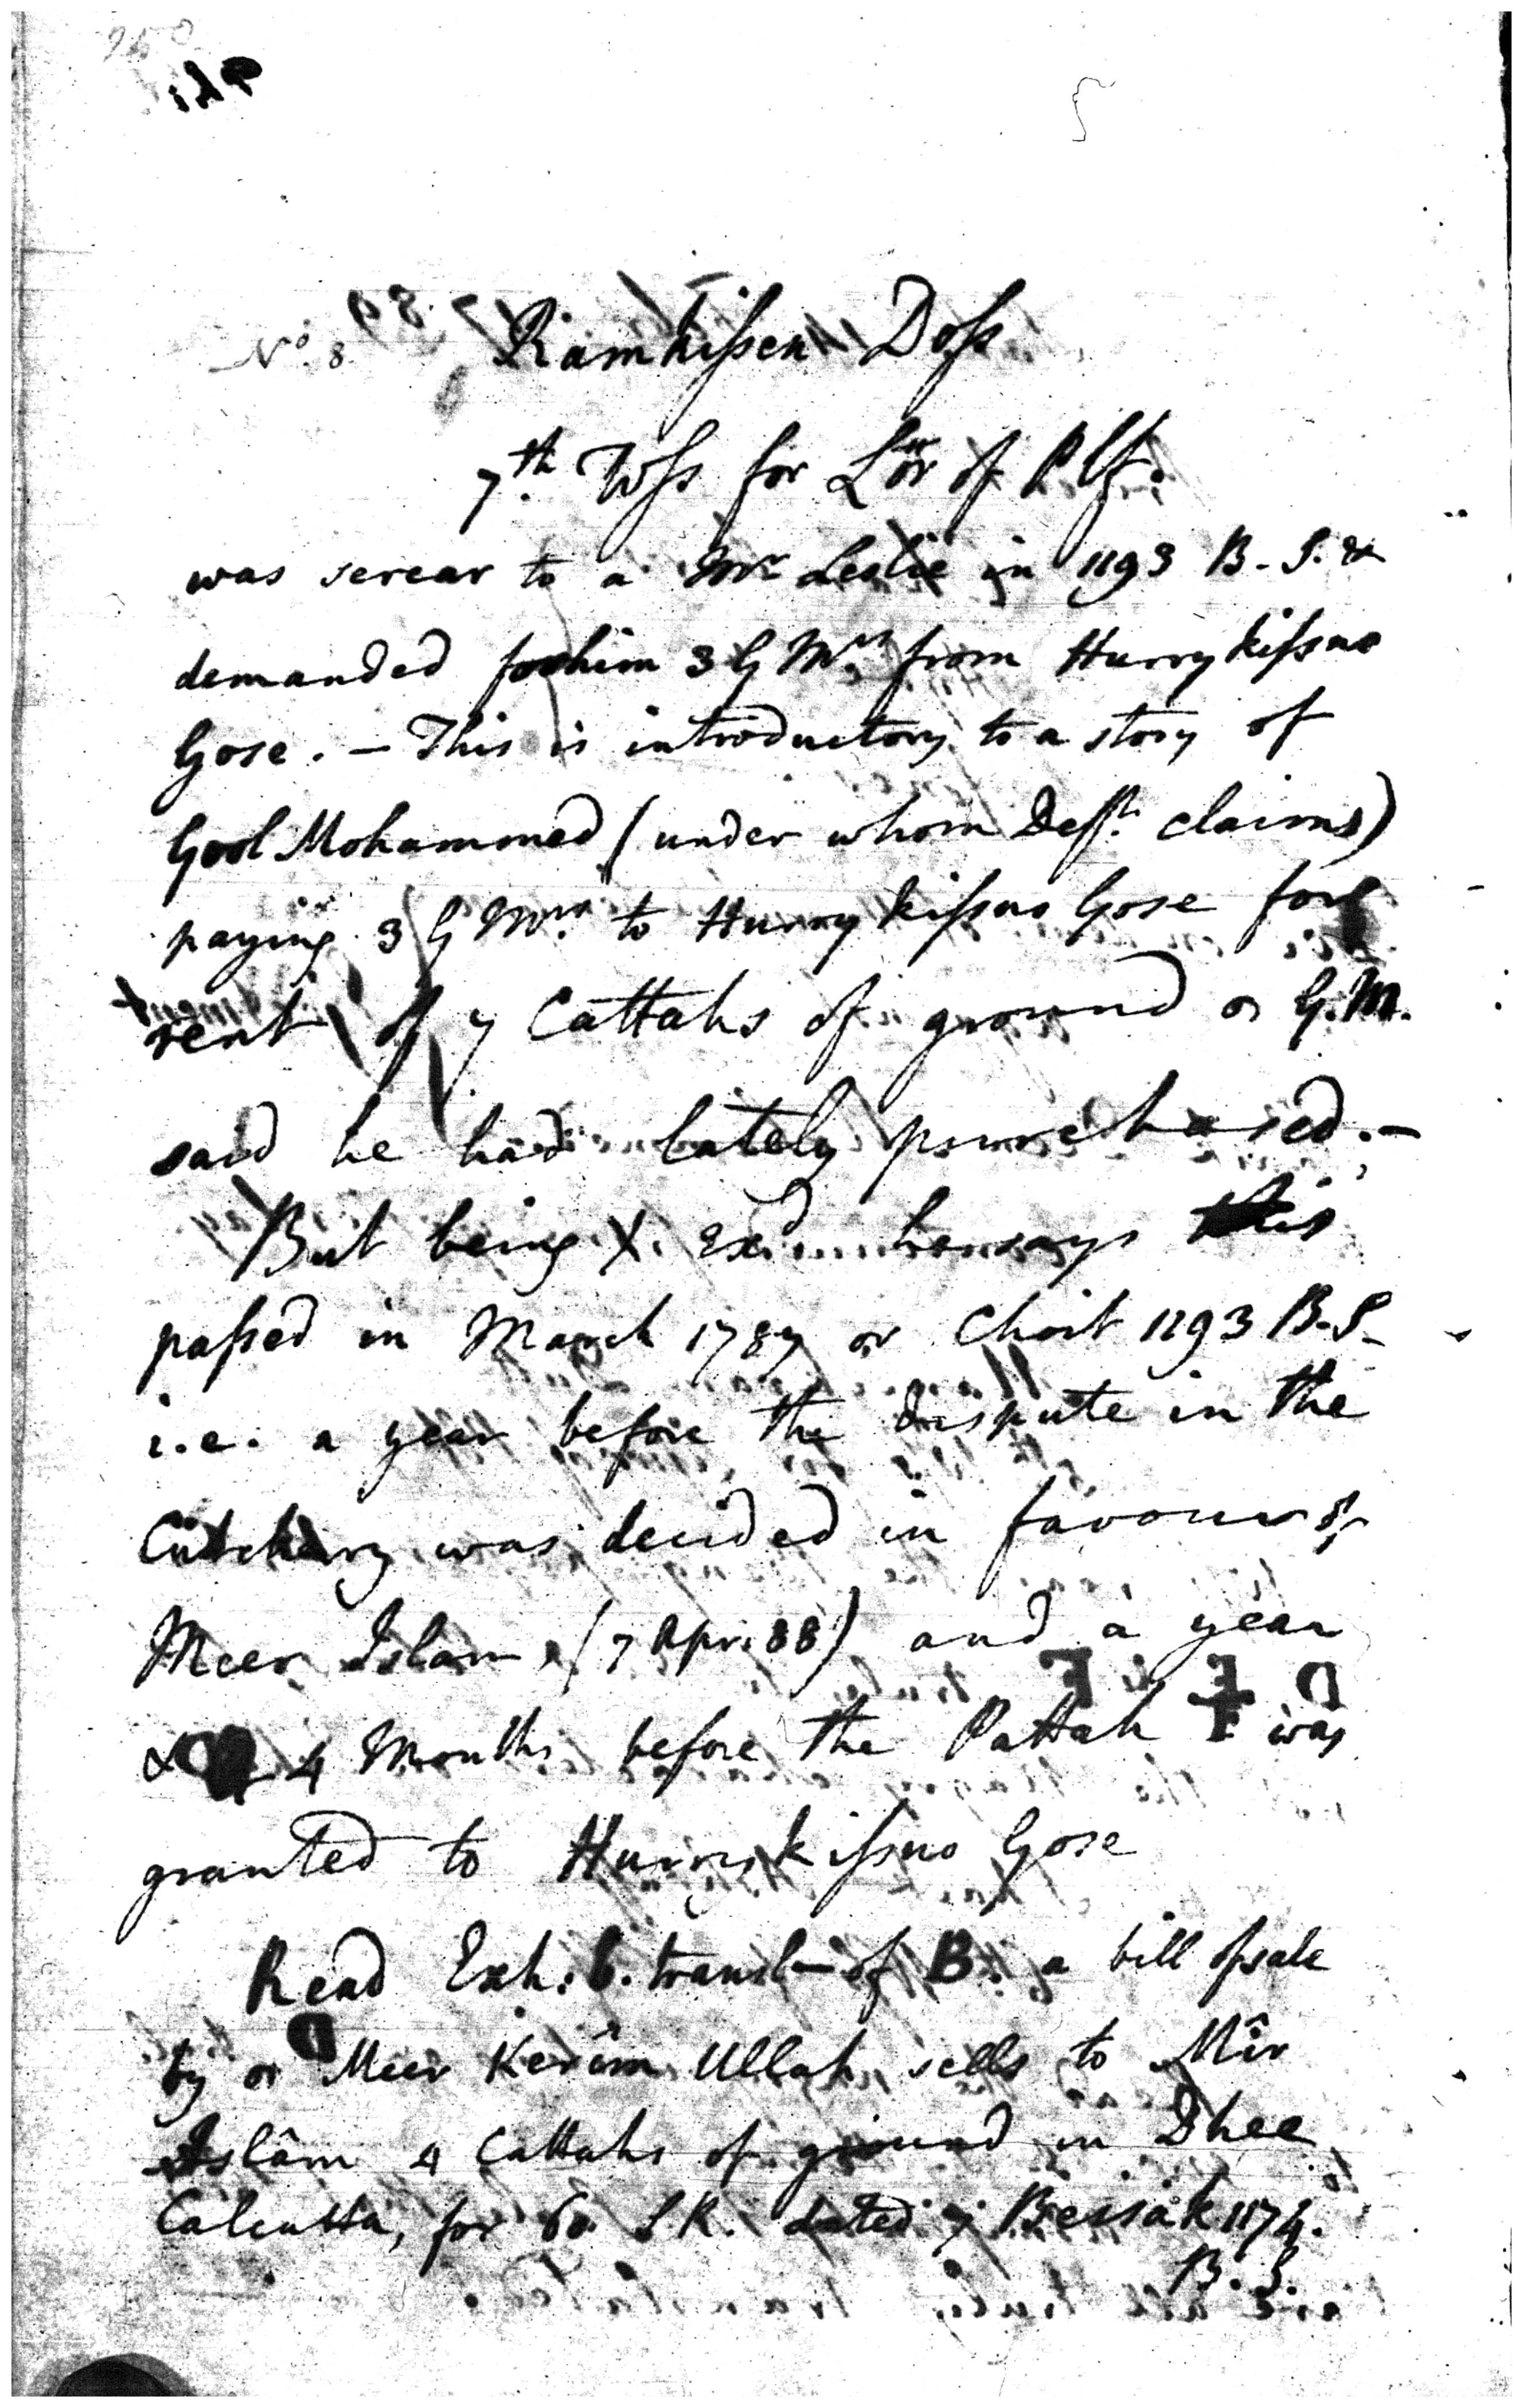 250
No. 8. Ramkissen Doss
7th Wss for Lor of Plf.
was sercar to a Mr Leslie in 1193 B.S. &
demanded for him 3 G Mrs from Hurrykissno
Gose. — This is introductory to a story of
Gool Mohammed (under whom Deft. claims)
paying 3 G Mrs to Hurry kissno Gose for
rent of 7 Cattahs of ground or G.M.
said he had lately purchased. —
But being X. Exd. he says this
passed in March 1787 or Choit 1193 B.S.
i.e. a year before the dispute in the
Cutcherry was decided in favour of
Meer Islam, (7 Apr. 88) and a year
& 4 Months before the Pattah F was
granted to Hurrykissno Gose
Read Exh: 6. transl— of B. a bill of sale
by or Meer Kerîm Ullah sells to Mîr
Islâm 4 Cattahs of ground in Dhee
Calcutta, for 60 S.R. dated 7 Bessâk 1174.
B.S.